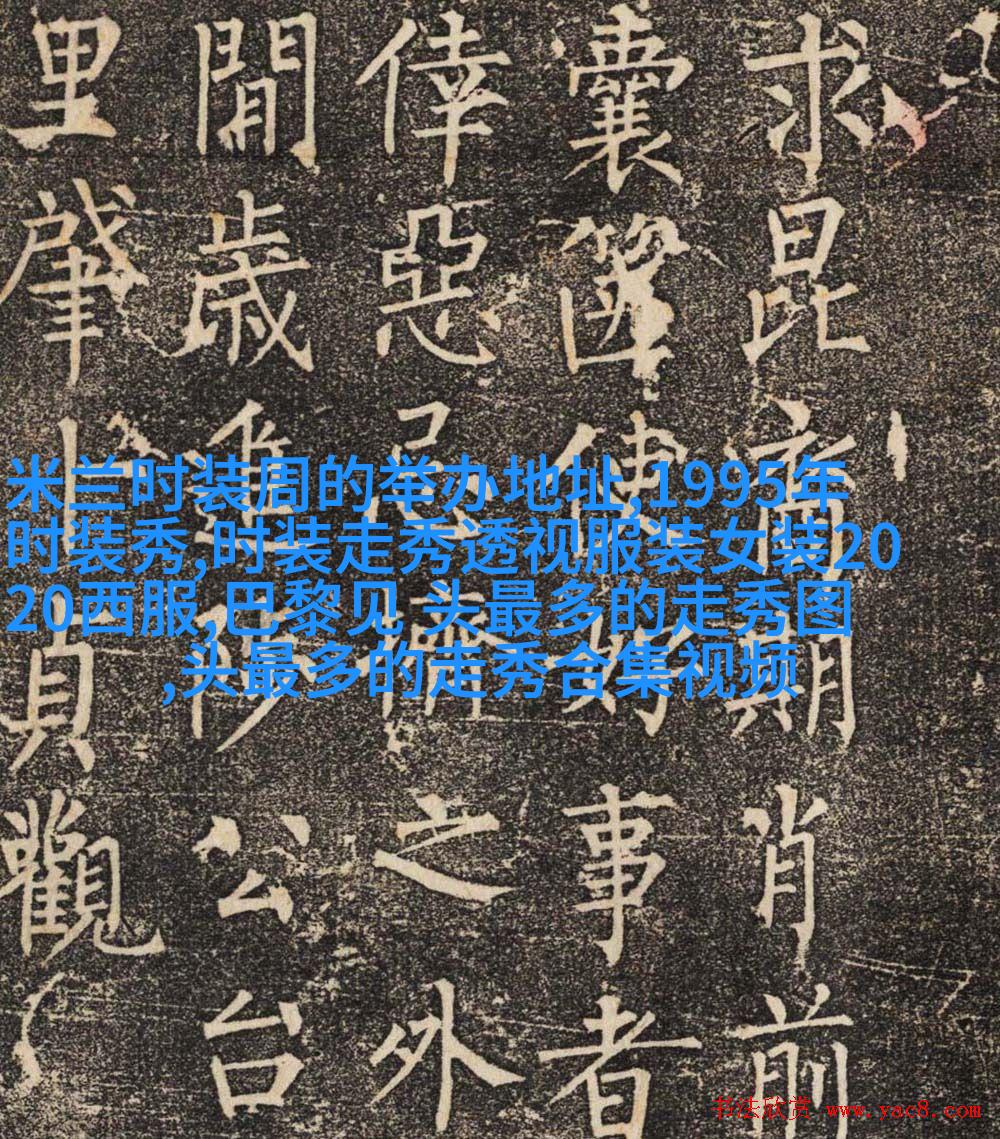 求昆裔期肖前
囊篋使好事者
倖惡忌儕之外
閒歲進陟公台
里肇自貞觀
米兰时装周的举办地址,1995年
时装秀,时装走秀透视服装女装20
20西服,巴黎见 头最多的走秀图
,头最多的走秀合集视频
书法欣赏 www.yac8.com